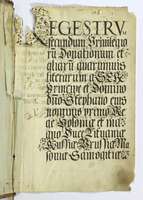 REGESTRV
secundum Privilegio
rū Donationum et
aliarū quarumuis
literarum a SERE
Principe et Domino
Dno Stephano eius
nominis primo Re
ge Poloniæ et mag
no Duce Lituaniæ
Russiæ Prussiæ Ma
souiæ Samogitiæ